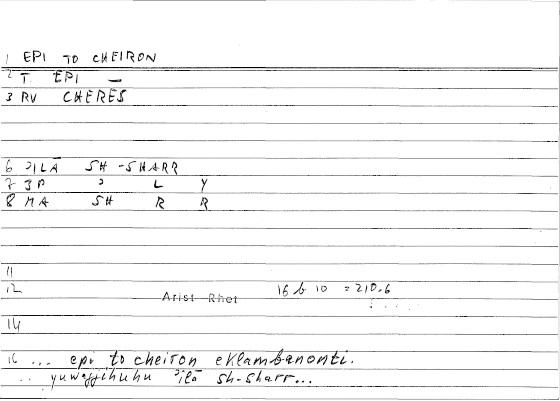 1 EPI TO CHEIRON
2 T. EPI —
3 RV CHERES
6 ʾILĀ SH-SHARR
7 3P ʾ L Y
8 MA SH R R
11
12 Arist Rhet 16 b 10 = 210.6
14
16 ... epi to cheiron eklambanonti.
.. yuwajjihuhu ʾilā sh-sharr...